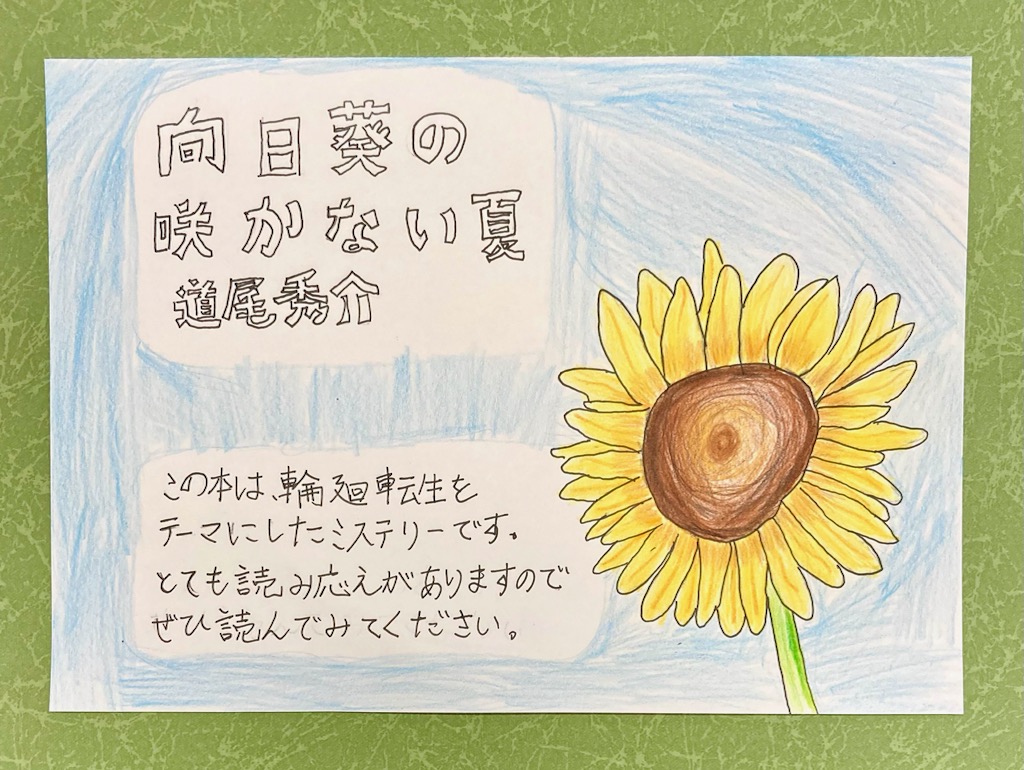 向日葵の
咲かない夏
道尾秀介
この本は、輪廻転生を
テーマにしたミステリーです。
とても読み応えがありますので
ぜひ読んでみてください。